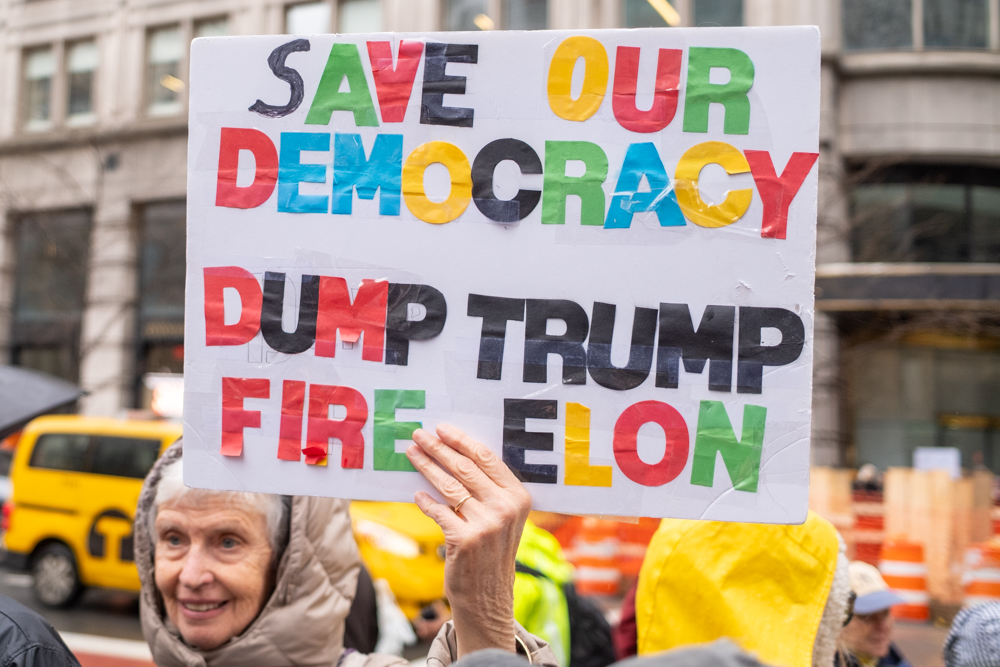 SAVE OUR
DEMOCRACY
DUMP TRUMP
FIRE ELON